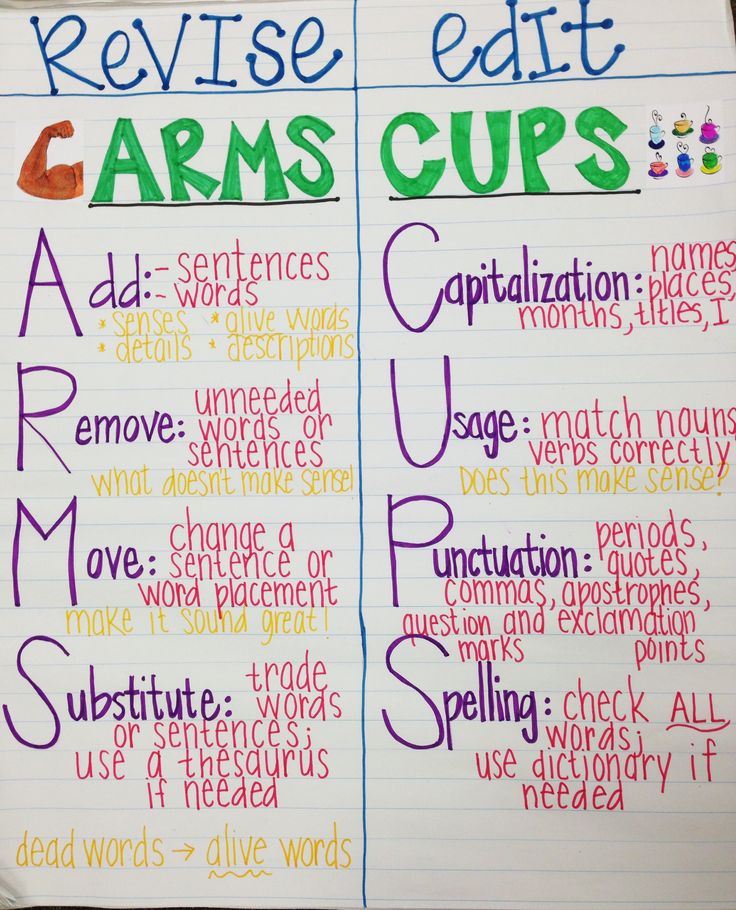 Revise
ARMS
Add: - sentences
- words
* senses * alive words
* details * descriptions
Remove: unneeded
words or
sentences
What doesn't make sense!
Move: change a
sentence or
word placement
make it sound great!
Substitute: trade
words
or sentences;
use a thesaurus
if needed
dead words → alive words
edit
CUPS
Capitalization: names,
places,
months, titles, I
Usage: match nouns
verbs correctly
Does this make sense?
Punctuation: periods,
quotes,
commas, apostrophes,
question and exclamation
marks points
Spelling: check ALL
words;
use dictionary if
needed